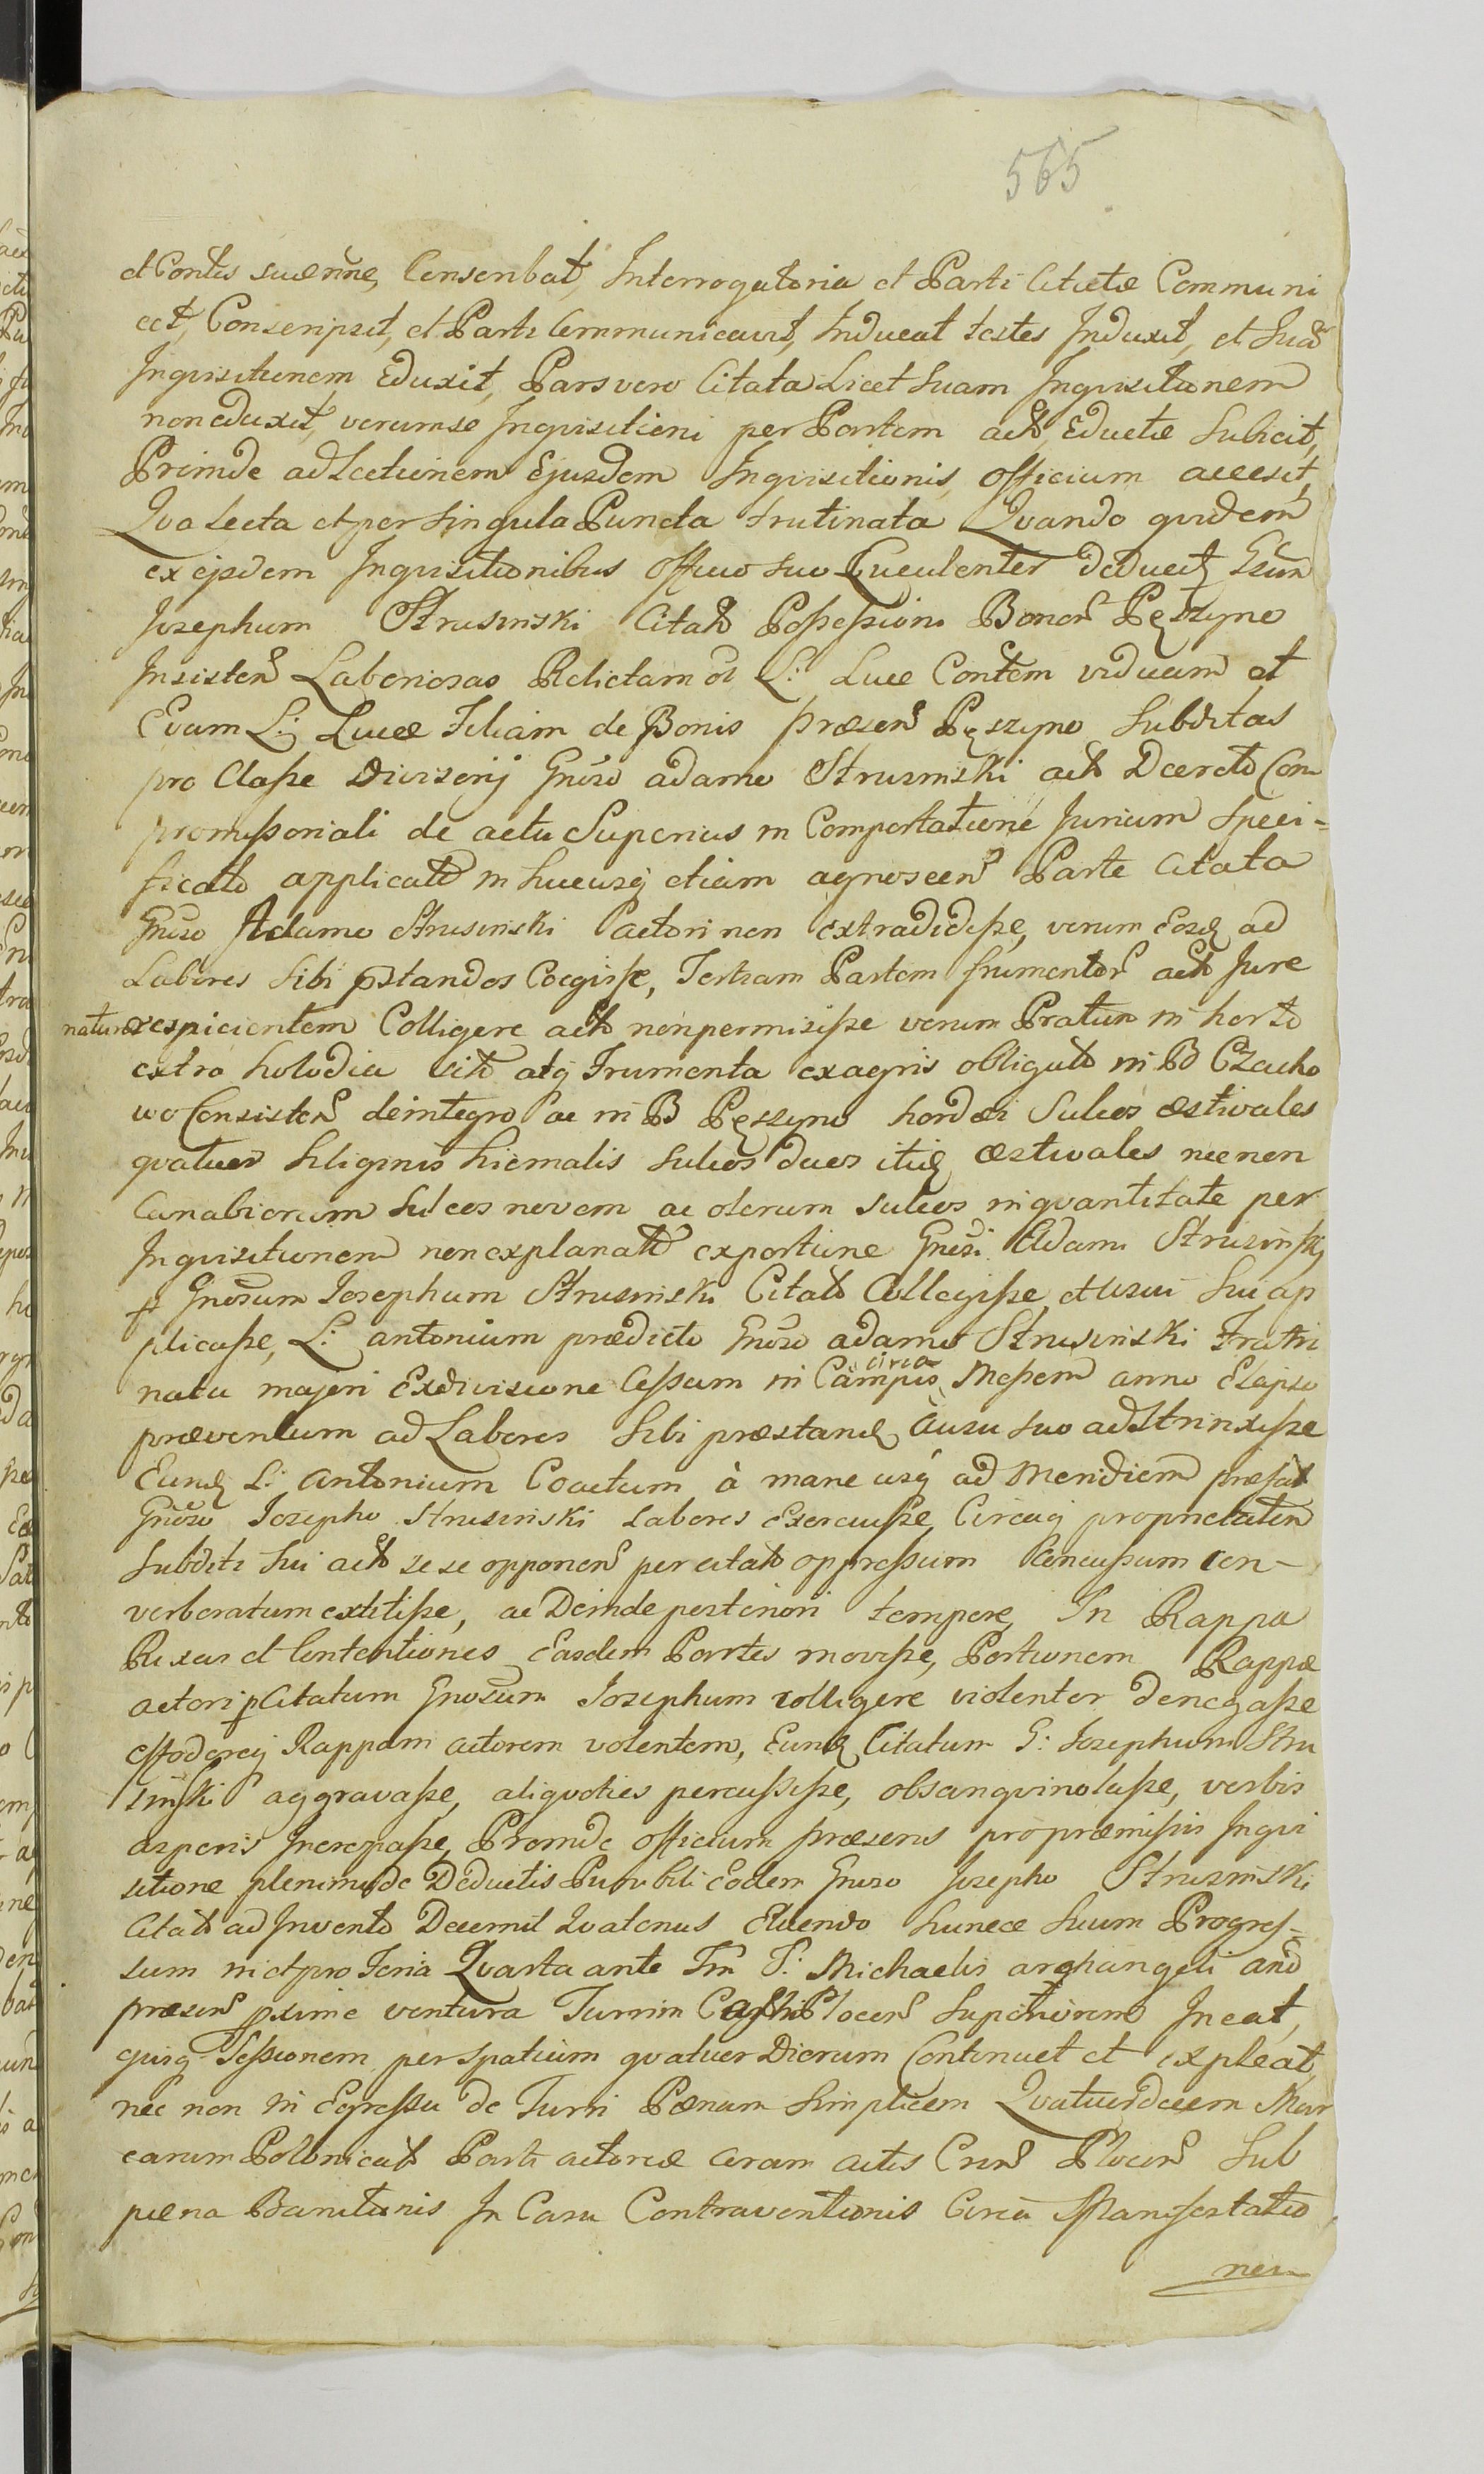 565
et Contis suæ nne, Conscribat, Interrogatoria et Parti Citatæ Communi
cet, Conscripsit, et Parti Communicavit, Inducat testes Induxit, et Suã
Inquisitionem Eduxit, Pars vero Citata Licet Suam Inquisitionem
non eduxit, verum se Inquisitioni per Partem act Eductæ Subicit,
Proinde ad Lectionem Ejusdem Inquisitionis Officium accesit,
Qva Lecta et per Singula Puncta trutinata Qvando qvidem
ex ejsdem Inquisitionibus Officio suo Luculenter deducit Gsum
Josephum Strusinski Citat Possessioni Bonor Pęszyno
Insisten Laboriosas Relictam ol L: Lucæ Contem viduam et
Evam L: Lucæ Filiam de Bonis præsen Pęszyno Subditas
pro Classe Divisorij Gnoso adamo Strusinski act Decreto Com
promissoriali de actu Superius in Comportatione Jurium Speci-
ficato applicat in hucusq etiam agnoscen Parte Citata
Gnoso Adamo Strusinski actori non extradidisse, verum Easd ad
Labores Sibi pstandos Coegisse, Tertiam Partem frumentor act Jure
natur respicientem Colligere act non permisisse verum Pratum in horto
extra holodia cit atq Frumenta ex agris obligat in Bo Czacho
wo Consisten de integro ac in B Pęszyno hordei Sulcos æstivales
qvatuor Siliginis hiemalis Sulcos duos itid æstivales nec non
Canabiorum Sulcos novem ac olerum Sulcos in qvantitate per
Inquisitionem non explanat ex portione Gnosi Adami Strusinski
p Gnosum Josephum Strusinski Citat Collegisse et usui Sui ap
plicasse, L: antonium prædicto Gnoso adamo Strusinski Fratri
natu majori Ex divisione Cessum in Campis circa Messem anno Elapso
præventum ad Labores Sibi præstand ausu suo adstrinxisse
Eund L: Antonium Coactum à mane usq ad Meridiem præfat
Gnoso Josepho Strusinski Labores Exercuisse Circaq proprietatem
Subditi Sui act se se opponen per citat oppressum Concussum con-
verberatum extitisse, ac Deinde posteriori tempore, In Rappa
Rixas et Contentiones Easdem Partes movisse, Portionem Rappæ
actori p Citatum Gnosum Josephum colligere violenter denegasse
effodereq Rappam actorem volentem, Eund Citatum G: Josephum Stru
sinski aggravasse, aliqvoties percussisse, obsangvinolasse, verbis
asperis Increpasse, Proinde Officium præsens pro præmissis Inqvi
sitione plenimode Deductis Punibili Eodem Gnoso Josepho Strusinski
Citat ad Invento Decernit Qvatenus Eluendo hunece Suum Progres-
sum in et pro Feria Qvarta ante Fm S: Michaelis archangeli and
præsen pxime ventura Turrim Castri Plocen Superiorem Ineat,
eviq Sessionem per spatium qvatuor Dierum Continuet et expleat,
nec non in Egressu de Turri Pænam Simplicem Qvatuordecem Mar
carum Polonicat Parti actoreæ coram actis Cren Plocen Sub
pæna Banitionis In Casu Contraventionis Circa Manifestatio
nem